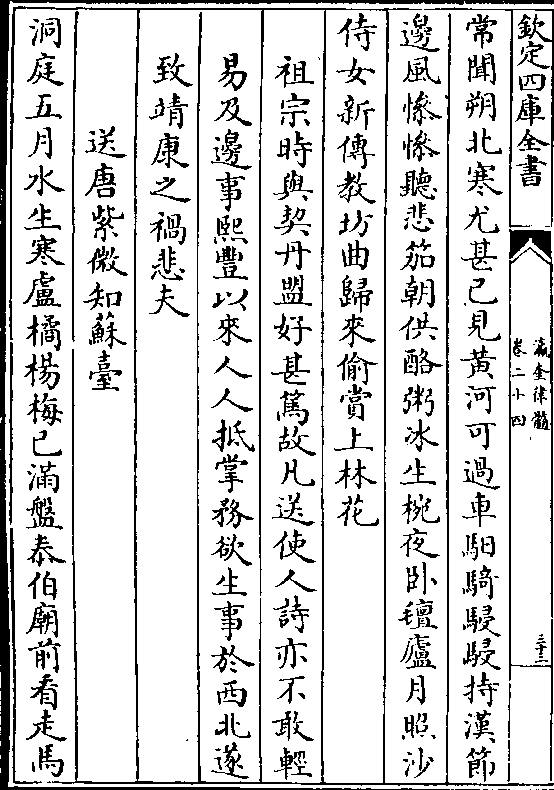 欽定四庫全書
瀛奎律髓
卷二十四
三十三
常聞朔北寒尤甚已見黃河可過車馹騎駸駸持漢節
邊風慘慘聽悲笳朝供酪粥冰生椀夜卧氊廬月照沙
侍女新傳教坊曲歸來偷賞上林花
祖宗時與契丹盟好甚篤故凡送使人詩亦不敢輕
易及邊事熙豐以來人人抵掌務欲生事於西北遂
致靖康之禍悲夫
送唐紫微知蘇臺
洞庭五月水生寒盧橘楊梅已滿盤泰伯廟前看走馬